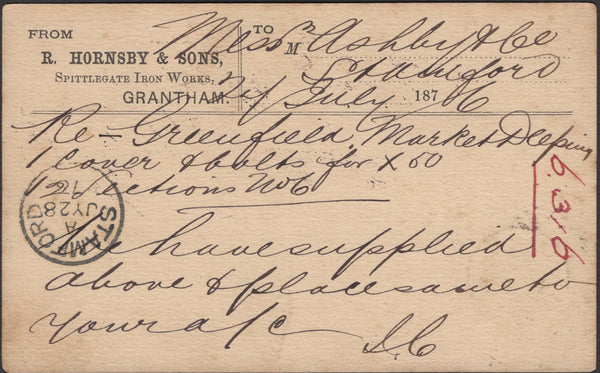 FROM
R. HORNSBY & SONS,
SPITTLEGATE IRON WORKS,
GRANTHAM.
TO
Messrs M Ashby & Co
Stamford
27 July 1876
Re - Greenfield Market Deeping
1 cover & bolts for X 50
12 Sections No 6
We have supplied
above & place same to
your a/c
6.316
STAMFORD
A
JY 28
76